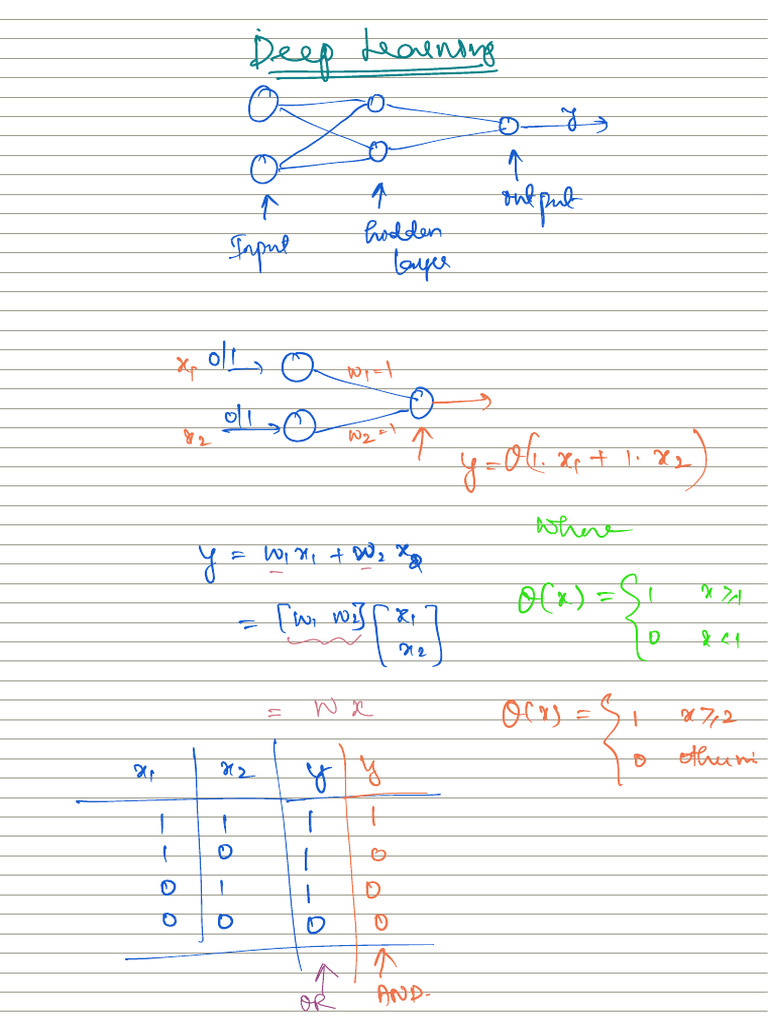 Deep Learning
y
Input
hidden
layer
output
x1 0/1
w1=1
x2 0/1
w2=1
y = θ(1. x1 + 1. x2)
Where
y = w1x1 + w2 x2
θ(x) = { 1 x≥1
0 x<1
= [w1 w2] [x1
x2]
= W x
θ(x) = { 1 x≥2
0
x1 x2 y y
1 1 1 1
1 0 1 0
0 1 1 0
0 0 0 0
OR AND.